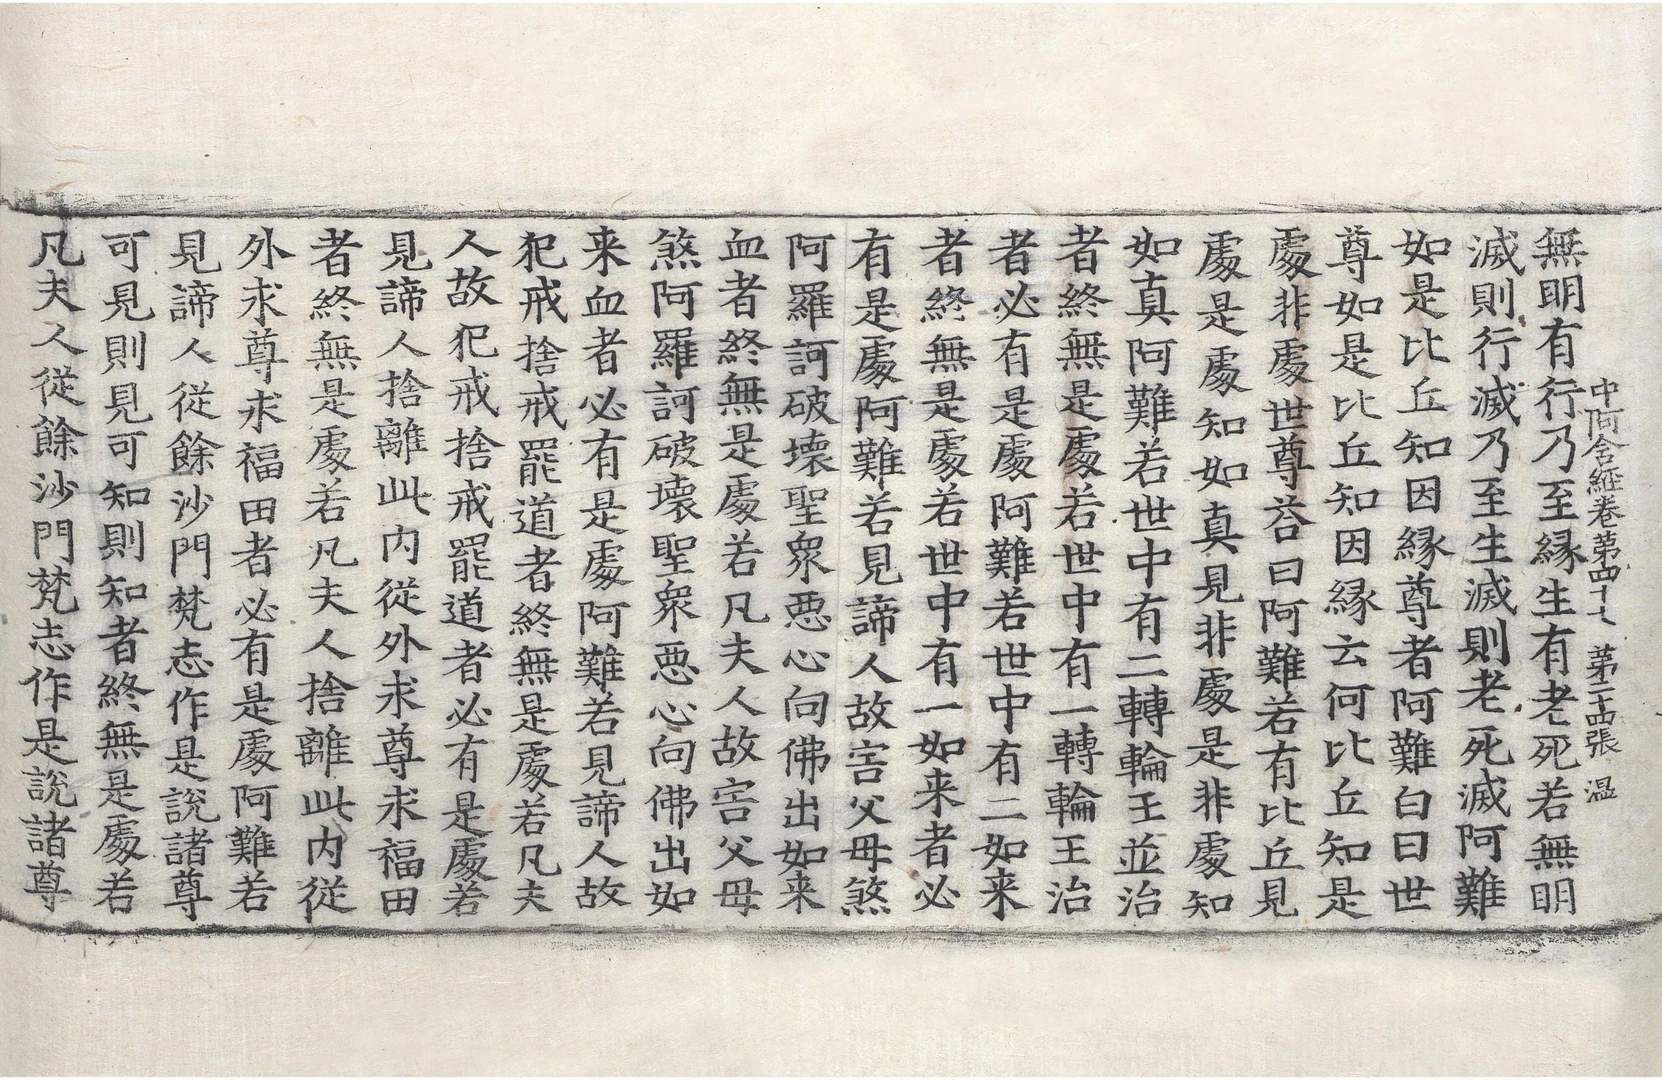 中阿含經卷第四十七 第二十四張 溫
無明有行乃至緣生有老死若無明
滅則行滅乃至生滅則老死滅阿難
如是比丘知因緣尊者阿難白曰世
尊如是比丘知因緣云何比丘知是
處非處世尊荅曰阿難若有比丘見
處是處知如真見非處是非處知
如真阿難若世中有二轉輪王並治
者終無是處若世中有一轉輪王治
者必有是處阿難若世中有二如来
者終無是處若世中有一如来者必
有是處阿難若見諦人故害父母煞
阿羅訶破壞聖衆惡心向佛出如来
血者終無是處若凡夫人故害父母
煞阿羅訶破壞聖衆惡心向佛出如
来血者必有是處阿難若見諦人故
犯戒捨戒罷道者終無是處若凡夫
人故犯戒捨戒罷道者必有是處若
見諦人捨離此內從外求尊求福田
者終無是處若凡夫人捨離此內從
外求尊求福田者必有是處阿難若
見諦人從餘沙門梵志作是說諸尊
可見則見可知則知者終無是處若
凡夫人從餘沙門梵志作是說諸尊